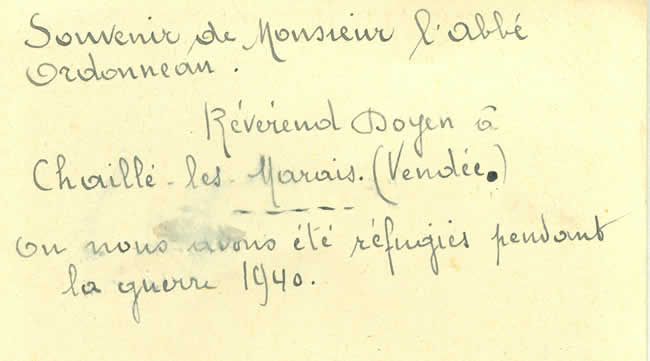 Souvenir de Monsieur l'abbé
Ordonneau.
Révérend Doyen à
Chaillé-les-Marais. (Vendée.)
Ou nous avons été réfugiés pendant
la guerre 1940.